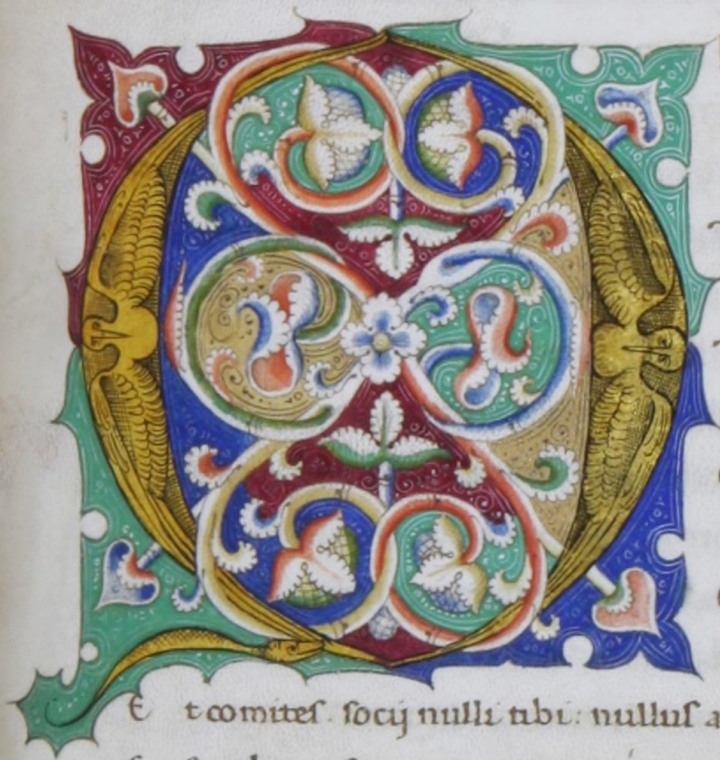 Q
E t comites. socij nulli tibi: nullus a